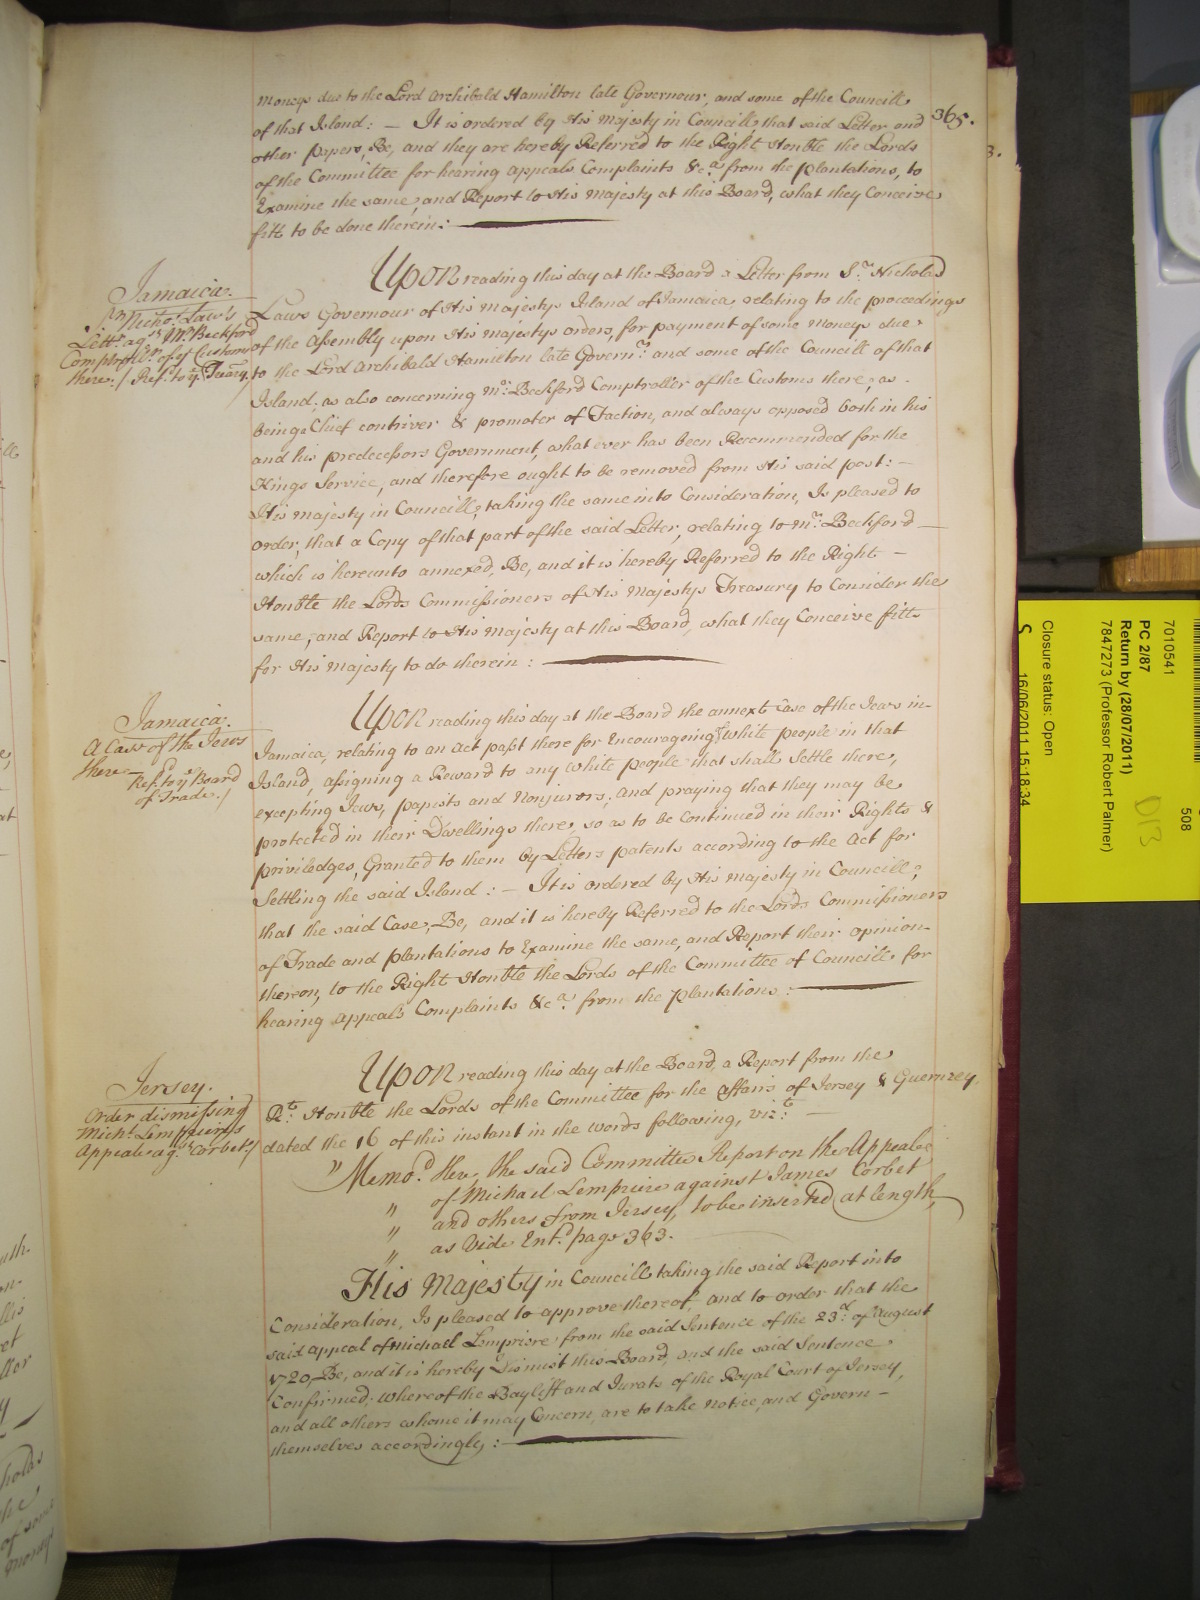 365.
moneys due to the Lord Archibald Hamilton late Governour, and some of the Councill
of that Island: — It is ordered by His Majesty in Councill, that said Letter and
other papers, Be, and they are hereby Referred to the Right Honble the Lords
of the Committee for hearing appeals Complaints &c.a from the plantations, to
Examine the same, and Report to His Majesty at this Board, what they Conceive
fitt to be done therein:
Jamaica.
Sr Nicho: Laws's
Lettr. agst Mr Beckford
Comptrollr. of ye Customs
there. / Ref. to ye Treary. /
Upon reading this day at the Board a Letter from Sr. Nicholas
Laws Governour of His Majestys Island of Jamaica relating to the proceedings
of the Assembly upon His Majestys orders, for payment of some Moneys due
to the Lord Archibald Hamilton late Governr. and some of the Councill of that
Island; as also concerning Mr. Beckford Comptroller of the Customs there, as
being Chief contriver & promoter of Faction, and always opposed both in his
and his predecessors Government, what ever has been Recommended for the
Kings Service, and therefore ought to be removed from His said post: —
His Majesty in Councill, taking the same into Consideration, Is pleased to
order, that a Copy of that part of the said Letter, relating to Mr. Beckford —
which is hereunto annexed, Be, and it is hereby Referred to the Right —
Honble the Lords Commissioners of His Majestys Treasury to Consider the
same, and Report to His Majesty at this Board, what they Conceive fitt
for His Majesty to do therein:
Jamaica.
A Case of the Jews
there —
Ref. to ye Board
of Trade. /
Upon reading this day at the Board the annext Case of the Jews in
Jamaica, relating to an Act past there for Encourageing white people in that
Island, assigning a Reward to any white people that shall Settle there,
excepting Jews, papists and Nonjurors; and praying that they may be
protected in their Dwellings there, so as to be Continued in their Rights &
priviledges, Granted to them by Letters patents according to the Act for
Settling the said Island: — It is ordered by His Majesty in Councill,
that the said Case, Be, and it is hereby Referred to the Lords Commissioners
of Trade and plantations to Examine the same, and Report their opinion
thereon, to the Right Honble the Lords of the Committee of Councill for
hearing appeals Complaints &c.a from the plantations:
Jersey.
Order dismissing
Michl. Lemprieres
Appeale agst. Corbet. /
Upon reading this day at the Board, a Report from the
Rt. Honble the Lords of the Committee for the affairs of Jersey & Guernzey
dated the 16 of this instant in the words following, vizt.
" Memod. Here, the said Committee Report on the Appeale
of Michael Lempriere against James Corbet
" and others from Jersey, to be inserted at length,
" as Vide Entd. page 363.
"
His Majesty in Councill taking the said Report into
Consideration, Is pleased to approve thereof, and to order that the
said appeal of Michael Lempriere from the said Sentence of the 23d. of August
1720, Be, and it is hereby Dismist this Board, and the said Sentence
Confirmed; whereof the Bayliff and Jurats of the Royal Court of Jersey,
and all others whome it may Concern, are to take notice, and Govern —
themselves accordingly:
7010541
508
PC 2/87
Return by (28/07/2011)
7847273 (Professor Robert Palmer)
D13
Closure status: Open
16/06/2011 15:18:34
S